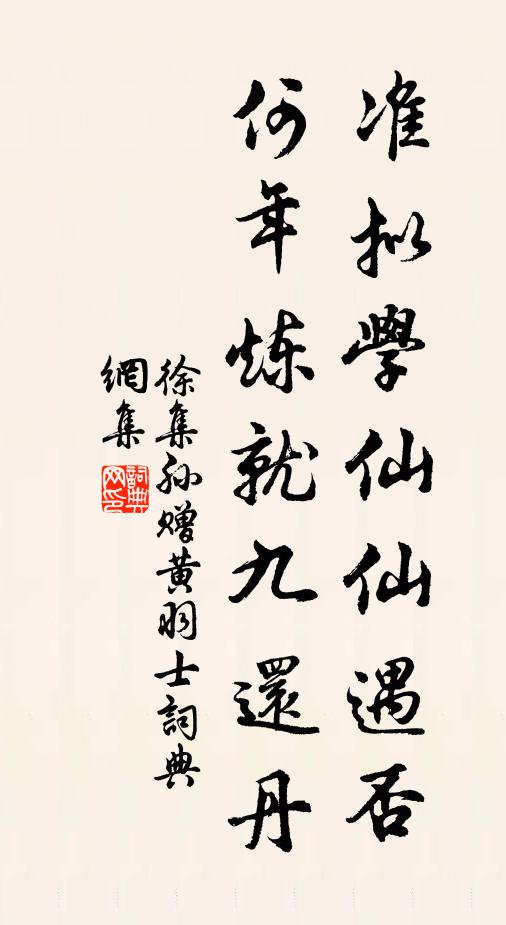 准拟學仙仙遇否
何年炼就九還丹
徐集孙贈黄羽士詞典
網集
詞典
网印